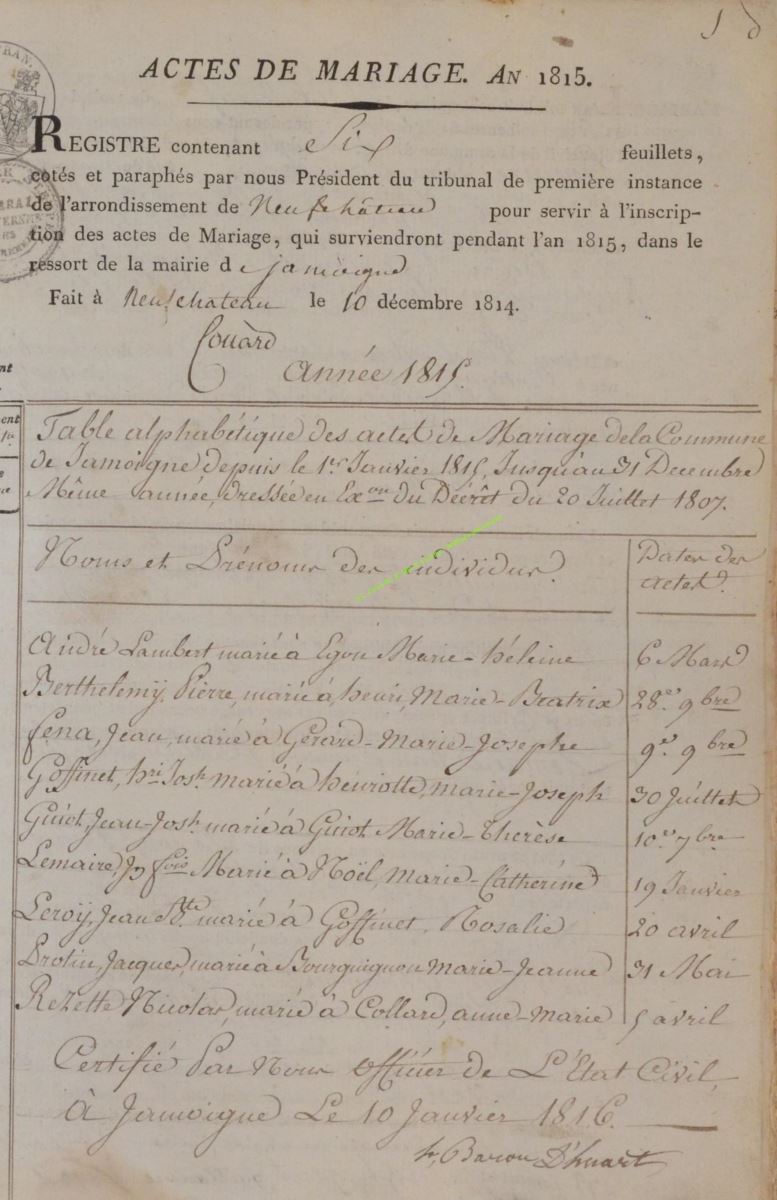 ACTES DE MARIAGE. AN 1815.
REGISTRE contenant Six feuillets,
cotés et paraphés par nous Président du tribunal de première instance
de l'arrondissement de Neufchâteau pour servir à l'inscrip-
tion des actes de Mariage, qui surviendront pendant l'an 1815, dans le
ressort de la mairie de jamoigne
Fait à Neufchateau le 10 décembre 1814.
Couärd
Année 1815.
Table alphabétique des actes de Mariage de la Commune
de Jamoigne depuis le 1er Janvier 1815, Jusqu'au 31 Decembre
Même année, dressée en Exon du Décrêt du 20 Juillet 1807.
Noms et Prénoms des individus. Dates des actes.
André Lambert marié à Egon Marie-héleine 6 Mars
Berthelemy, Pierre, marié à henri, Marie-Beatrix 28 9bre
fena, Jean, marié à Gérard-Marie-Josephe 9 9bre
Goffinet, hri Josh marié à henriotte, marie-Joseph 30 Juillet
Guiot, Jean-Josh marié à Guiot Marie-Thérèse 10 7bre
Lemaire, Jn fois Marié à Noël, marie-Catherine 19 Janvier
Leroÿ, Jean Bte marié à Goffinet, Rosalie 20 avril
Protin, Jacques, marié à Bourguignon Marie-Jeanne 31 Mai
Rezette Nicolas, marié à Collard, anne-Marie 5 avril
Certifié Par Nous Officier de L'État Civil,
à Jamoigne Le 10 Janvier 1816.
Baron D'huart